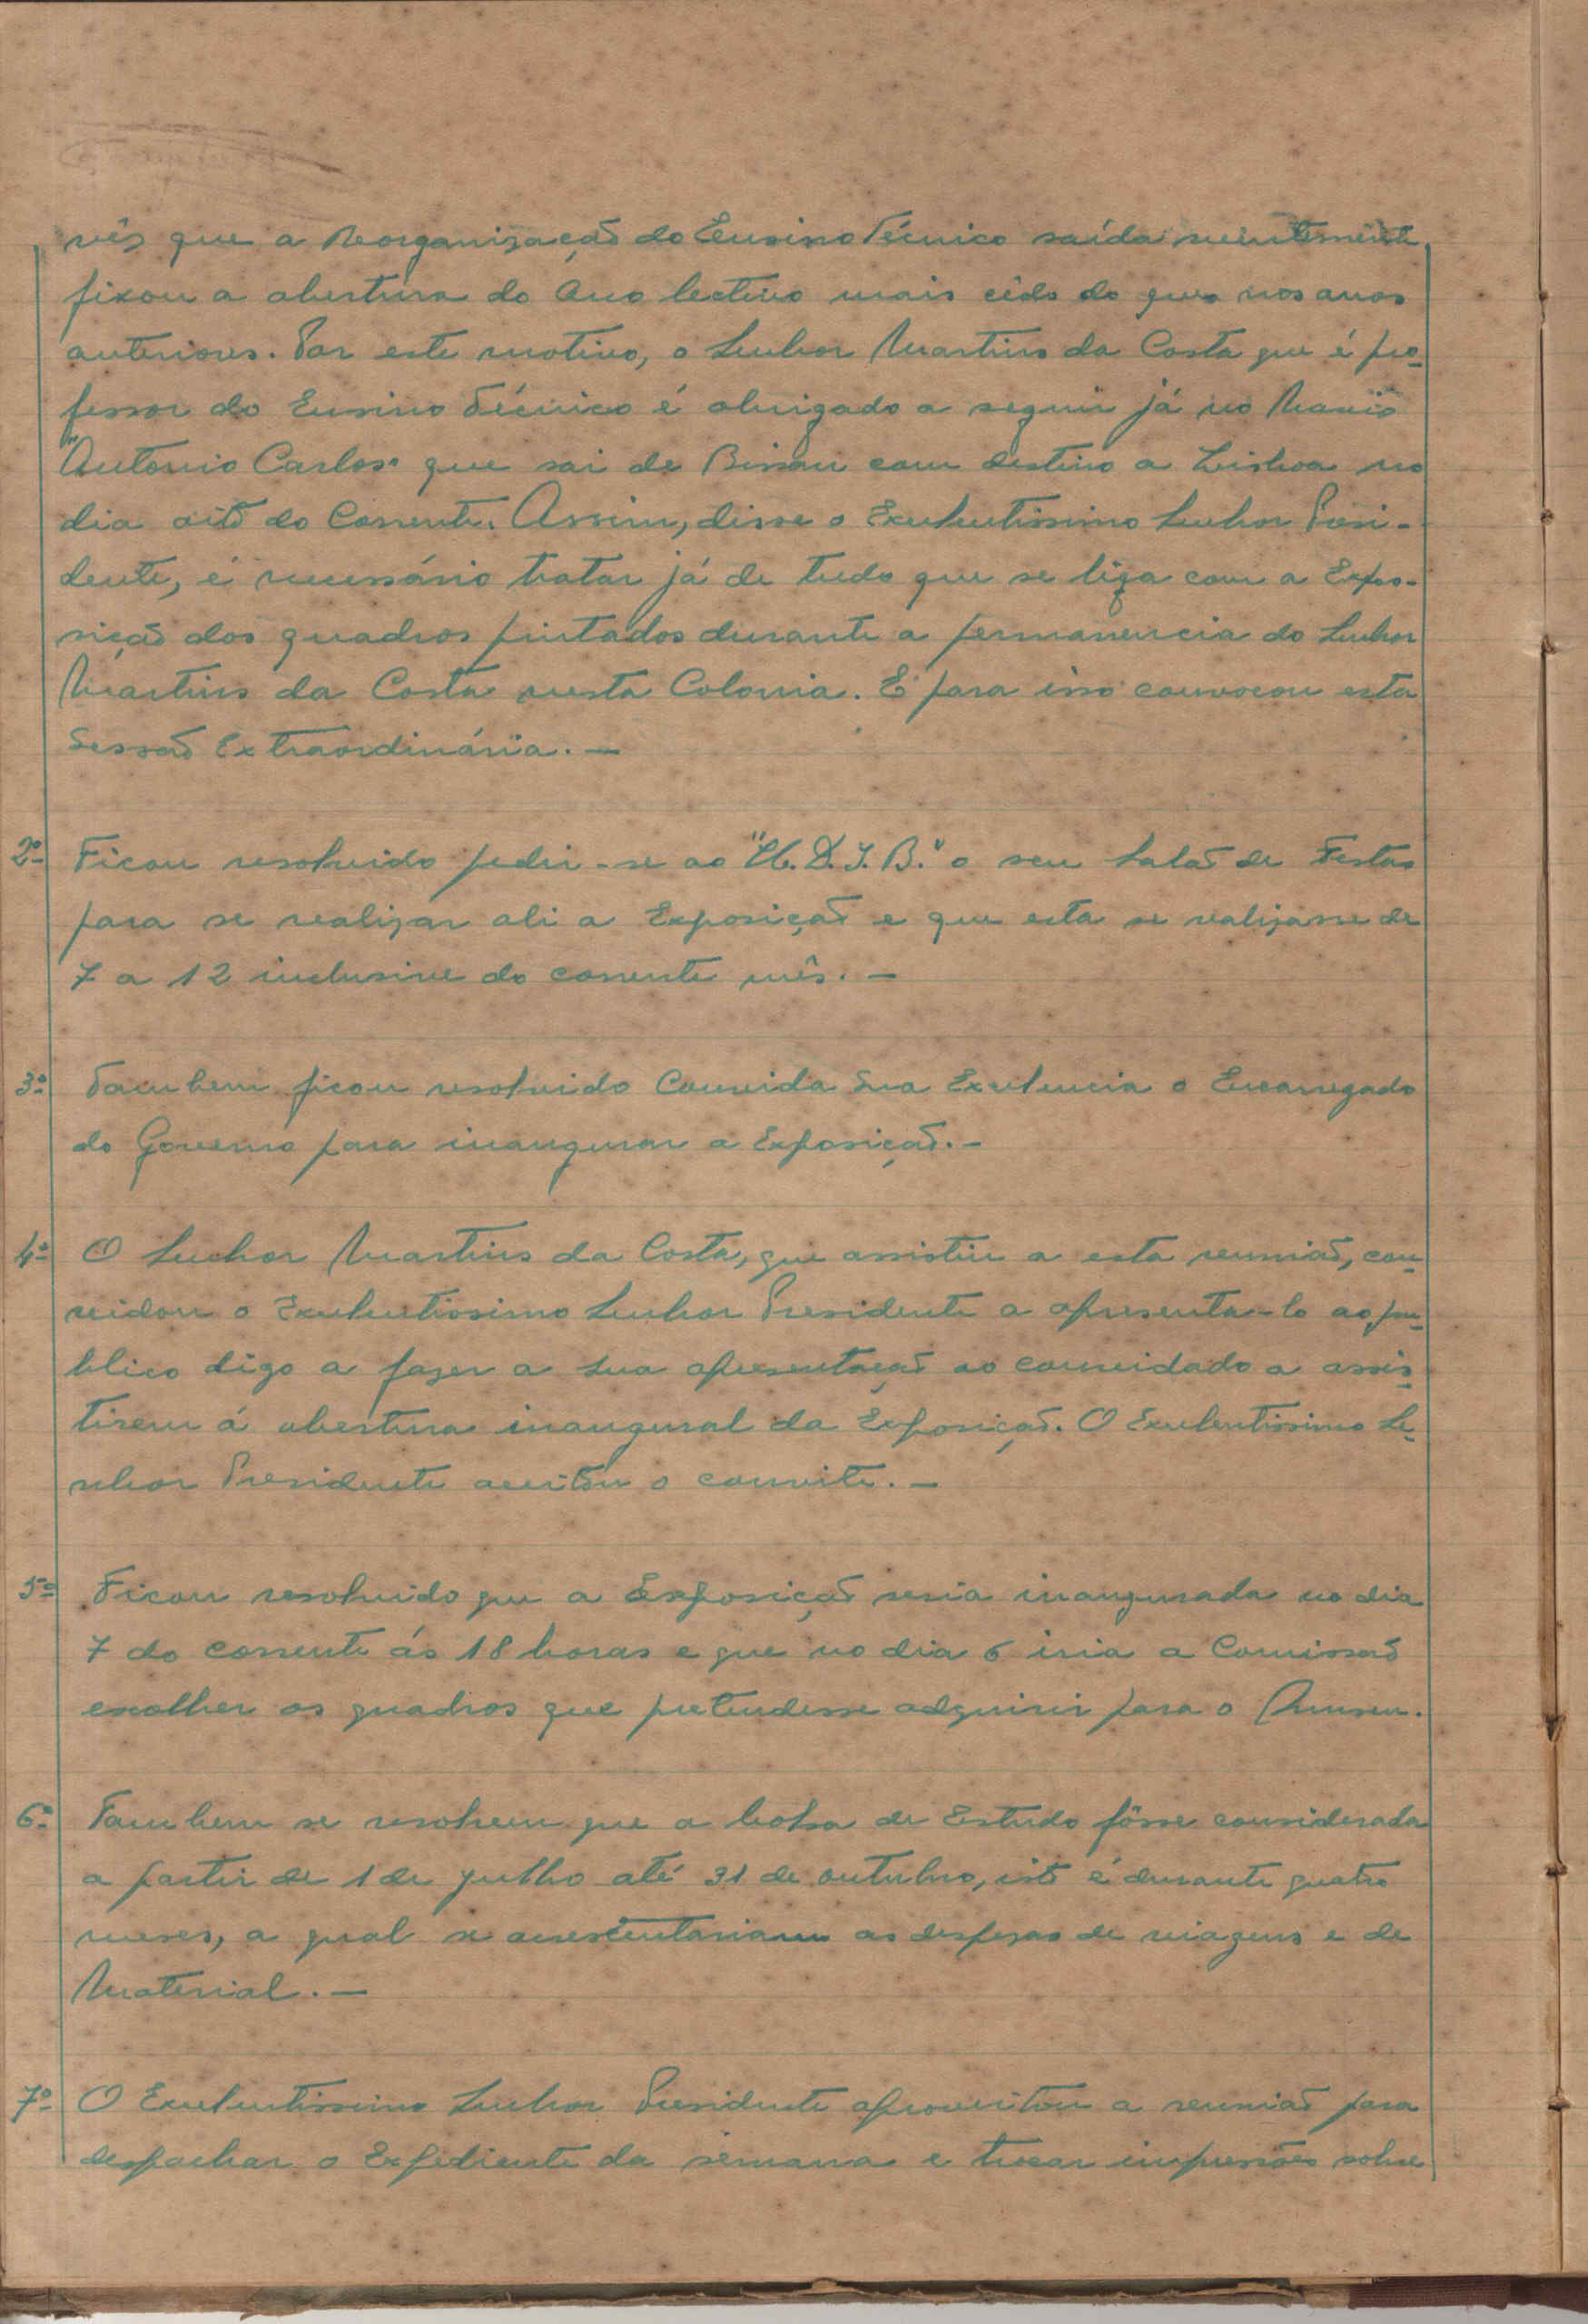 vês que a Reorganização do Ensino Técnico saída recentemente
fixou a abertura do Ano lectivo mais cêdo do que nos anos
anteriores. Por este motivo, o Senhor Martins da Costa que é pro-
fessor do Ensino Técnico é obrigado a seguir já no Navio
"António Carlos" que sai de Bissau com destino a Lisboa no
dia oito do Corrente. Assim, disse o Excelentissimo Senhor Presi-
dente, é necessário tratar já de tudo que se liga com a Expo-
sição dos quadros pintados durante a permanencia do Senhor
Martins da Costa nesta Colonia. E para isso convocou esta
Sessão Extraordinária. —
2º- Ficou resolvido pedir-se ao "U.D.I.B." o seu Salão de Festas
para se realizar ali a Exposição e que esta se realizasse de
7 a 12 inclusive do corrente mês. —
3º- Tambem ficou resolvido Convida Sua Excelencia o Encarregado
do Governo para inaugurar a Exposição. —
4º- O Senhor Martins da Costa, que assistiu a esta reunião, con-
vidou o Excelentissimo Senhor Presidente a apresenta-lo ao pu-
blico digo a fazer a sua apresentação ao convidado a assis-
tirem á abertura inaugural da Exposição. O Excelentissimo Se-
nhor Presidente aceitou o convite. —
5º- Ficou resolvido que a Exposição seria inaugurada no dia
7 do corrente ás 18 horas e que no dia 6 iria a Comissão
escolher os quadros que pretendesse adquirir para o Museu.
6º- Tambem se resolveu que a bolsa de Estudo fôsse considerada
a partir de 1 de julho até 31 de outubro, isto é durante quatro
meses, a qual se acrescentariam as despezas de viagens e de
Material. —
7º- O Excelentissimo Senhor Presidente aproveitou a reunião para
despachar o Expediente da semana e trocar impressões sobre